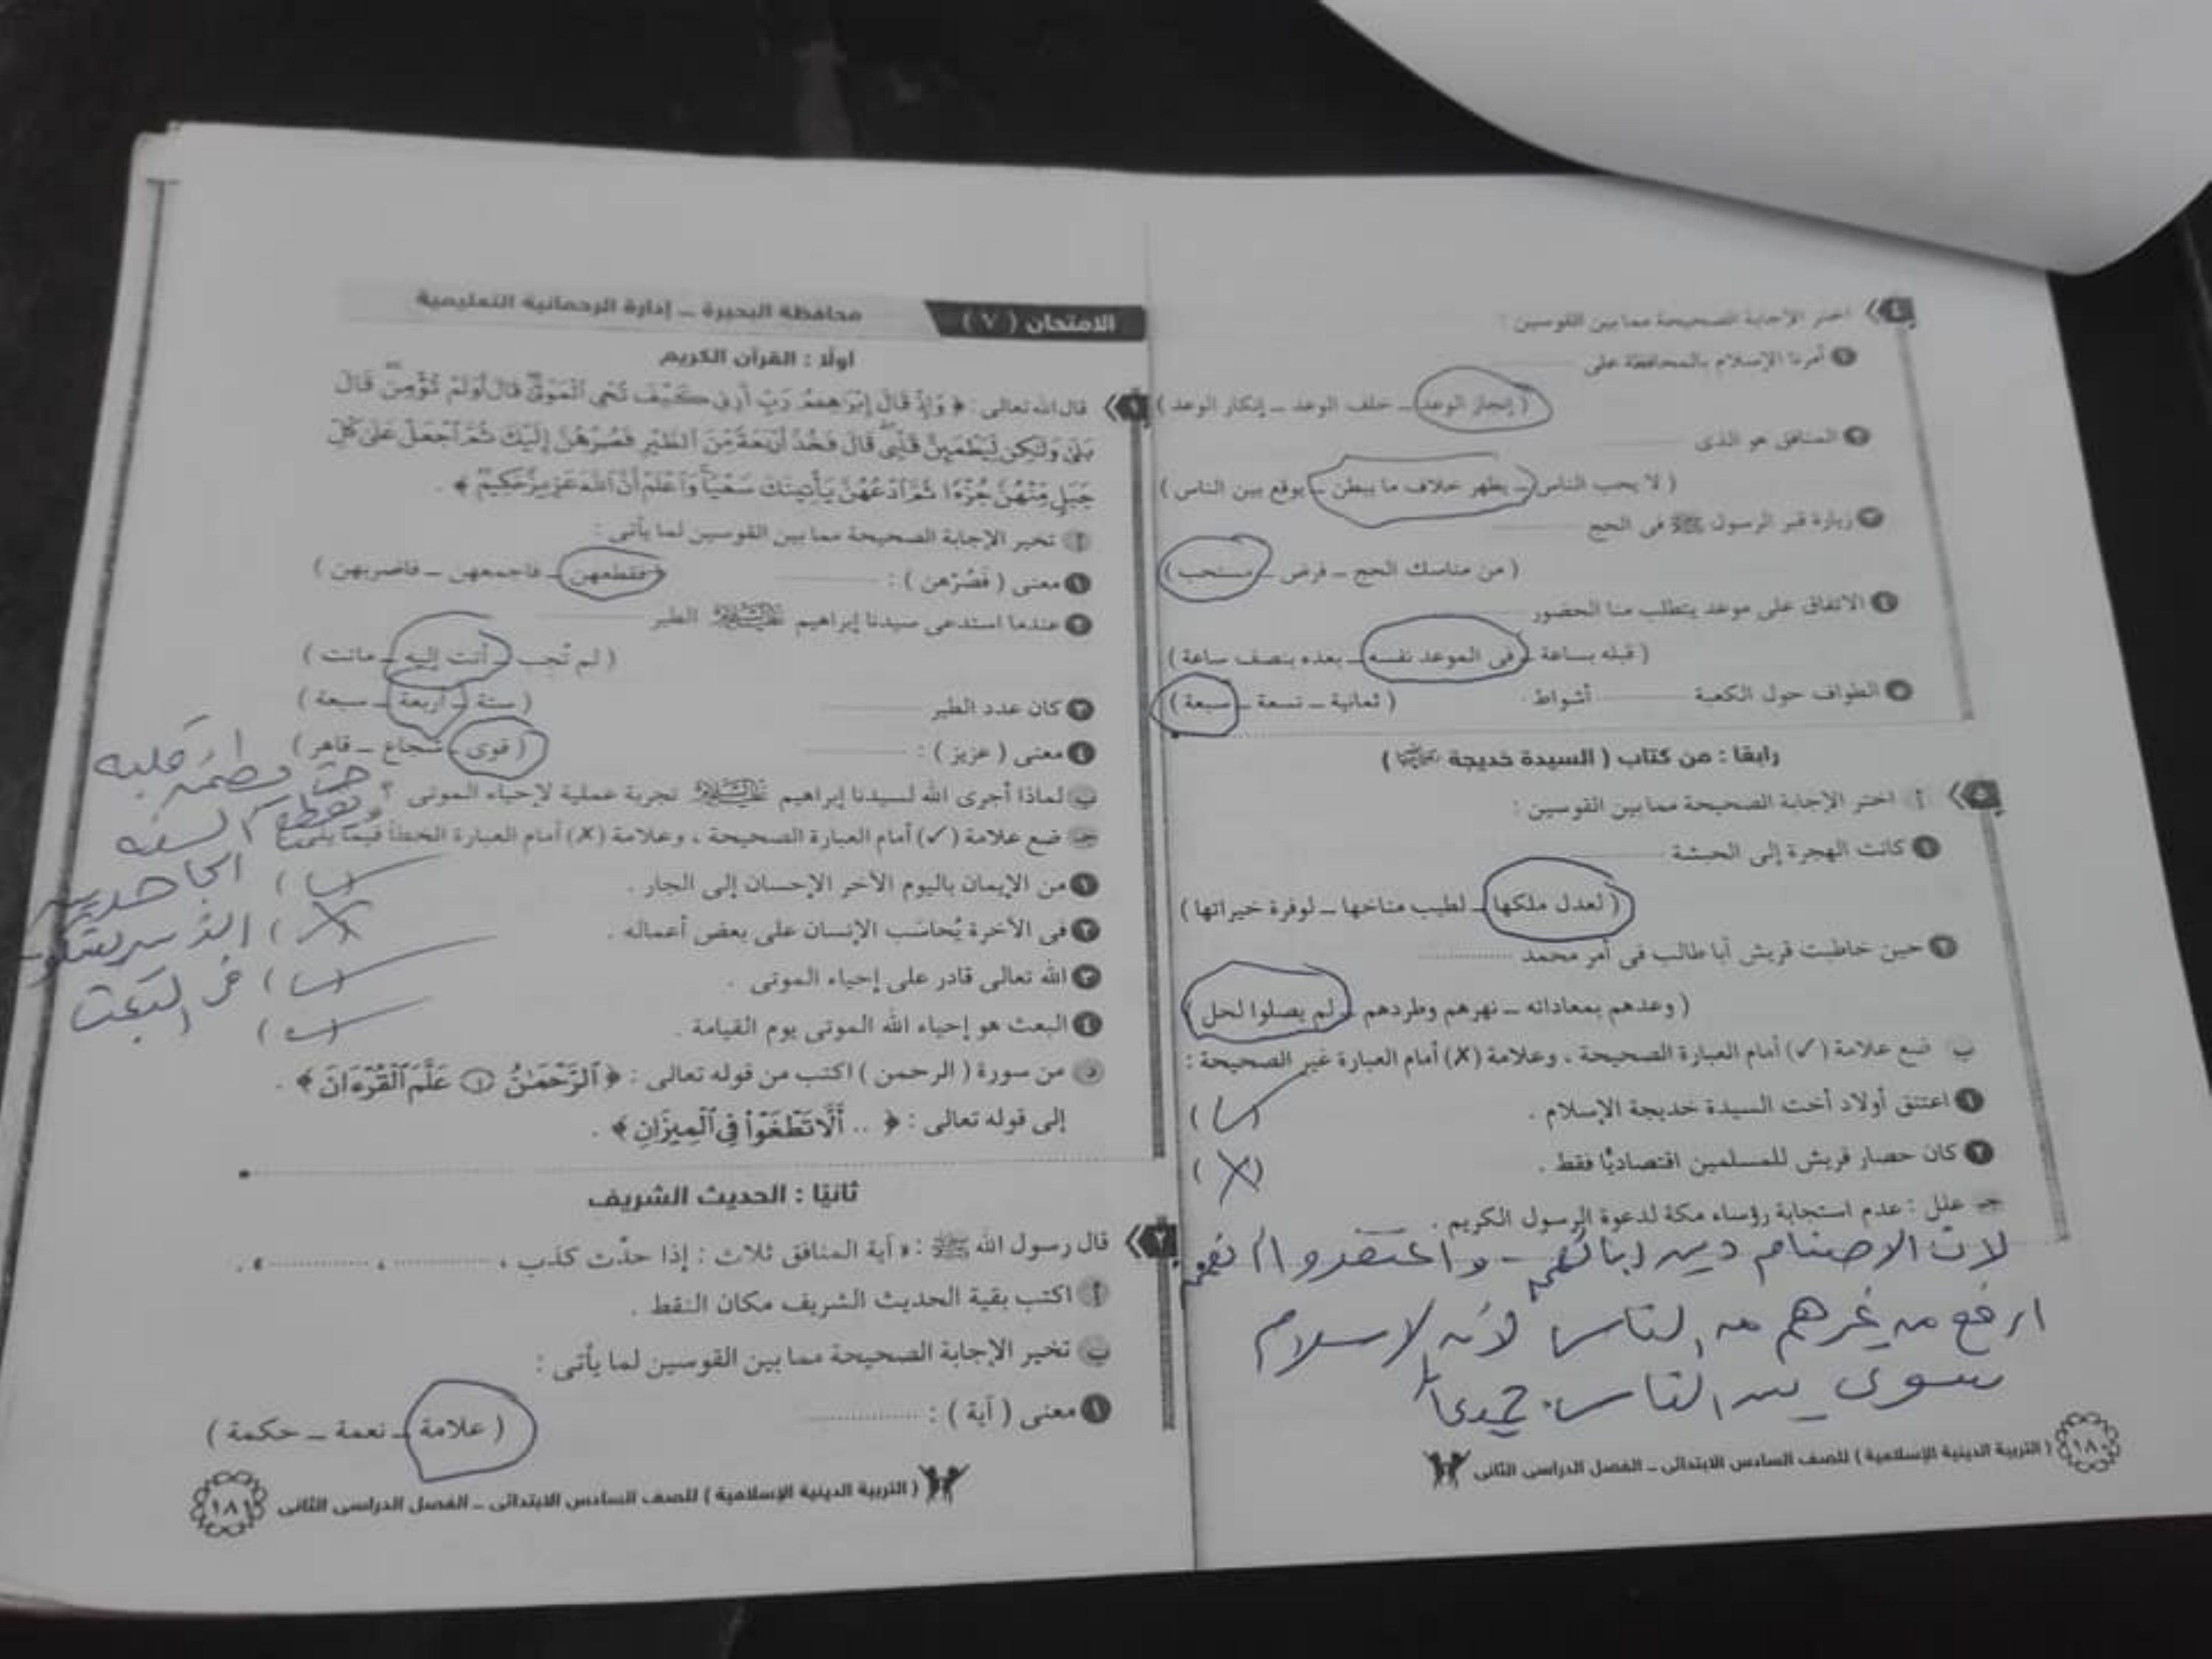 ٤ اختر الإجابة الصحيحة مما بين القوسين :
١ أمرنا الإسلام بالمحافظة على ..........
( إنجاز الوعد – خلف الوعد – إنكار الوعد )
٢ المنافق هو الذى ..........
( لا يحب الناس – يظهر خلاف ما يبطن – يوقع بين الناس )
٣ زيارة قبر الرسول ﷺ فى الحج ..........
( من مناسك الحج – فرض – مستحب )
٤ الاتفاق على موعد يتطلب منا الحضور ..........
( قبله بساعة – فى الموعد نفسه – بعده بنصف ساعة )
٥ الطواف حول الكعبة .......... أشواط . ( ثمانية – تسعة – سبعة )
رابعًا : من كتاب ( السيدة خديجة رضي الله عنها )
٥ أ اختر الإجابة الصحيحة مما بين القوسين :
١ كانت الهجرة إلى الحبشة ..........
( لعدل ملكها – لطيب مناخها – لوفرة خيراتها )
٢ حين خاطبت قريش أبا طالب فى أمر محمد ..........
( وعدهم بمعاداته – نهرهم وطردهم – لم يصلوا لحل )
ب ضع علامة (✓) أمام العبارة الصحيحة ، وعلامة (✗) أمام العبارة غير الصحيحة :
١ اعتنق أولاد أخت السيدة خديجة الإسلام . (✓)
٢ كان حصار قريش للمسلمين اقتصاديًّا فقط . (✗)
جـ علل : عدم استجابة رؤساء مكة لدعوة الرسول الكريم .
لان الاصنام دين ابائهم واعتقدوا انهم
ارفع من غيرهم من الناس لأن الاسلام
سوى بين الناس جميعا
( التربية الدينية الإسلامية ) للصف السادس الابتدائى – الفصل الدراسى الثانى ١٨٠
الامتحان ( ٧ ) محافظة البحيرة – إدارة الرحمانية التعليمية
أولًا : القرآن الكريم
١ قال الله تعالى : ﴿ وَإِذْ قَالَ إِبْرَاهِيمُ رَبِّ أَرِنِي كَيْفَ تُحْيِ الْمَوْتَىٰ قَالَ أَوَلَمْ تُؤْمِن قَالَ
بَلَىٰ وَلَٰكِن لِّيَطْمَئِنَّ قَلْبِي قَالَ فَخُذْ أَرْبَعَةً مِّنَ الطَّيْرِ فَصُرْهُنَّ إِلَيْكَ ثُمَّ اجْعَلْ عَلَىٰ كُلِّ
جَبَلٍ مِّنْهُنَّ جُزْءًا ثُمَّ ادْعُهُنَّ يَأْتِينَكَ سَعْيًا وَاعْلَمْ أَنَّ اللَّهَ عَزِيزٌ حَكِيمٌ ﴾ .
أ تخير الإجابة الصحيحة مما بين القوسين لما يأتى :
١ معنى ( فَصُرْهن ) : .......... ( فقطعهن – فاجمعهن – فاضربهن )
٢ عندما استدعى سيدنا إبراهيم عليه السلام الطير ..........
( لم تُجب – أتت إليه – ماتت )
٣ كان عدد الطير .......... ( ستة – أربعة – سبعة )
٤ معنى ( عزيز ) : .......... ( قوى – شجاع – قاهر )
ب لماذا أجرى الله لسيدنا إبراهيم عليه السلام تجربة عملية لإحياء الموتى ؟
قلبه
جـ ضع علامة (✓) أمام العبارة الصحيحة ، وعلامة (✗) أمام العبارة الخطأ فيما يلى :
١ من الإيمان باليوم الآخر الإحسان إلى الجار . (✓)
٢ فى الآخرة يُحاسَب الإنسان على بعض أعماله . (✗)
٣ الله تعالى قادر على إحياء الموتى . (✓)
فى البعث
٤ البعث هو إحياء الله الموتى يوم القيامة . (✓)
د من سورة ( الرحمن ) اكتب من قوله تعالى : ﴿ الرَّحْمَٰنُ ١ عَلَّمَ الْقُرْءَانَ ﴾ .
إلى قوله تعالى : ﴿ .. أَلَّا تَطْغَوْا فِي الْمِيزَانِ ﴾ .
ثانيًا : الحديث الشريف
٢ قال رسول الله ﷺ : « آية المنافق ثلاث : إذا حدّث كذب ، .......... ، .......... » .
أ اكتب بقية الحديث الشريف مكان النقط .
ب تخير الإجابة الصحيحة مما بين القوسين لما يأتى :
١ معنى ( آية ) : .......... ( علامة – نعمة – حكمة )
( التربية الدينية الإسلامية ) للصف السادس الابتدائى – الفصل الدراسى الثانى ١٨١